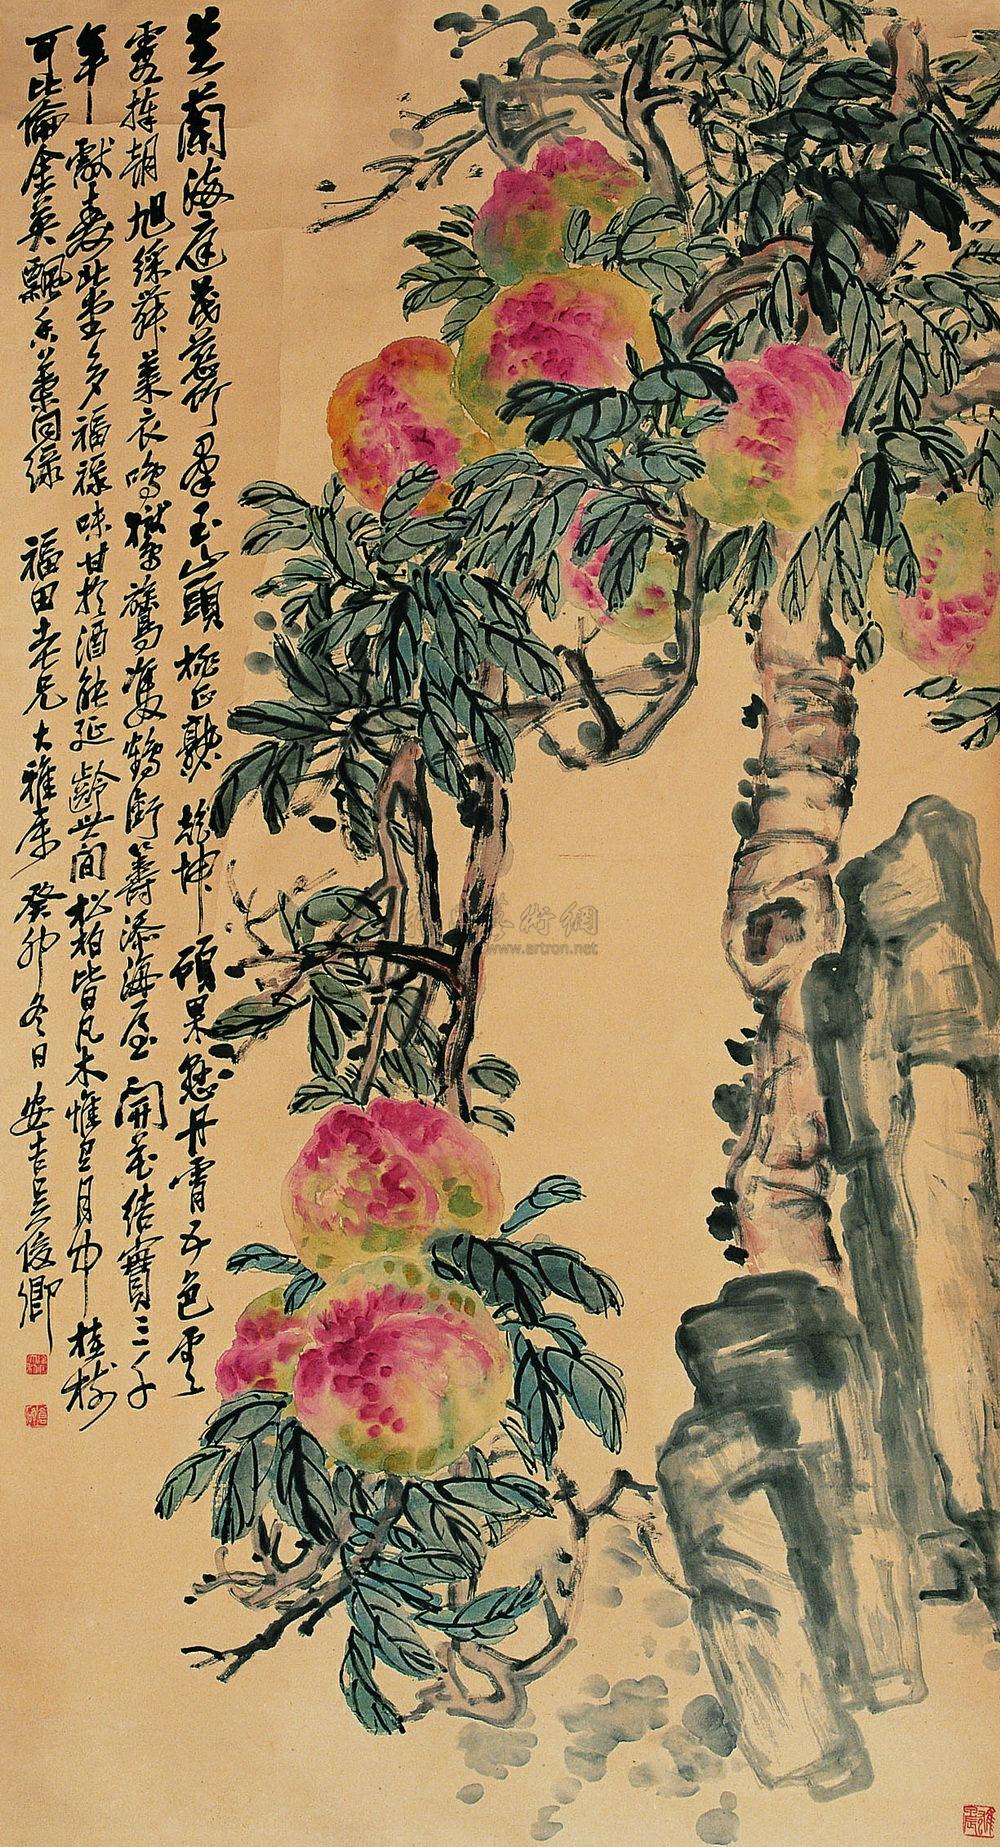 芝蘭海庭茂慈竹羣玉山頭桃正熟乾坤碩果懸丹霄五色雲
霞捧朝旭綵舞萊衣鳴鸞鶴銜籌添海屋開花結實三千
年獻壽此堂多福祿味甘於酒能延齡世間松柏皆凡木惟有月中桂樹
可比倫金英飄香葉同綠
福田老兄大雅屬癸卯冬日安吉吳俊卿
www.artron.net